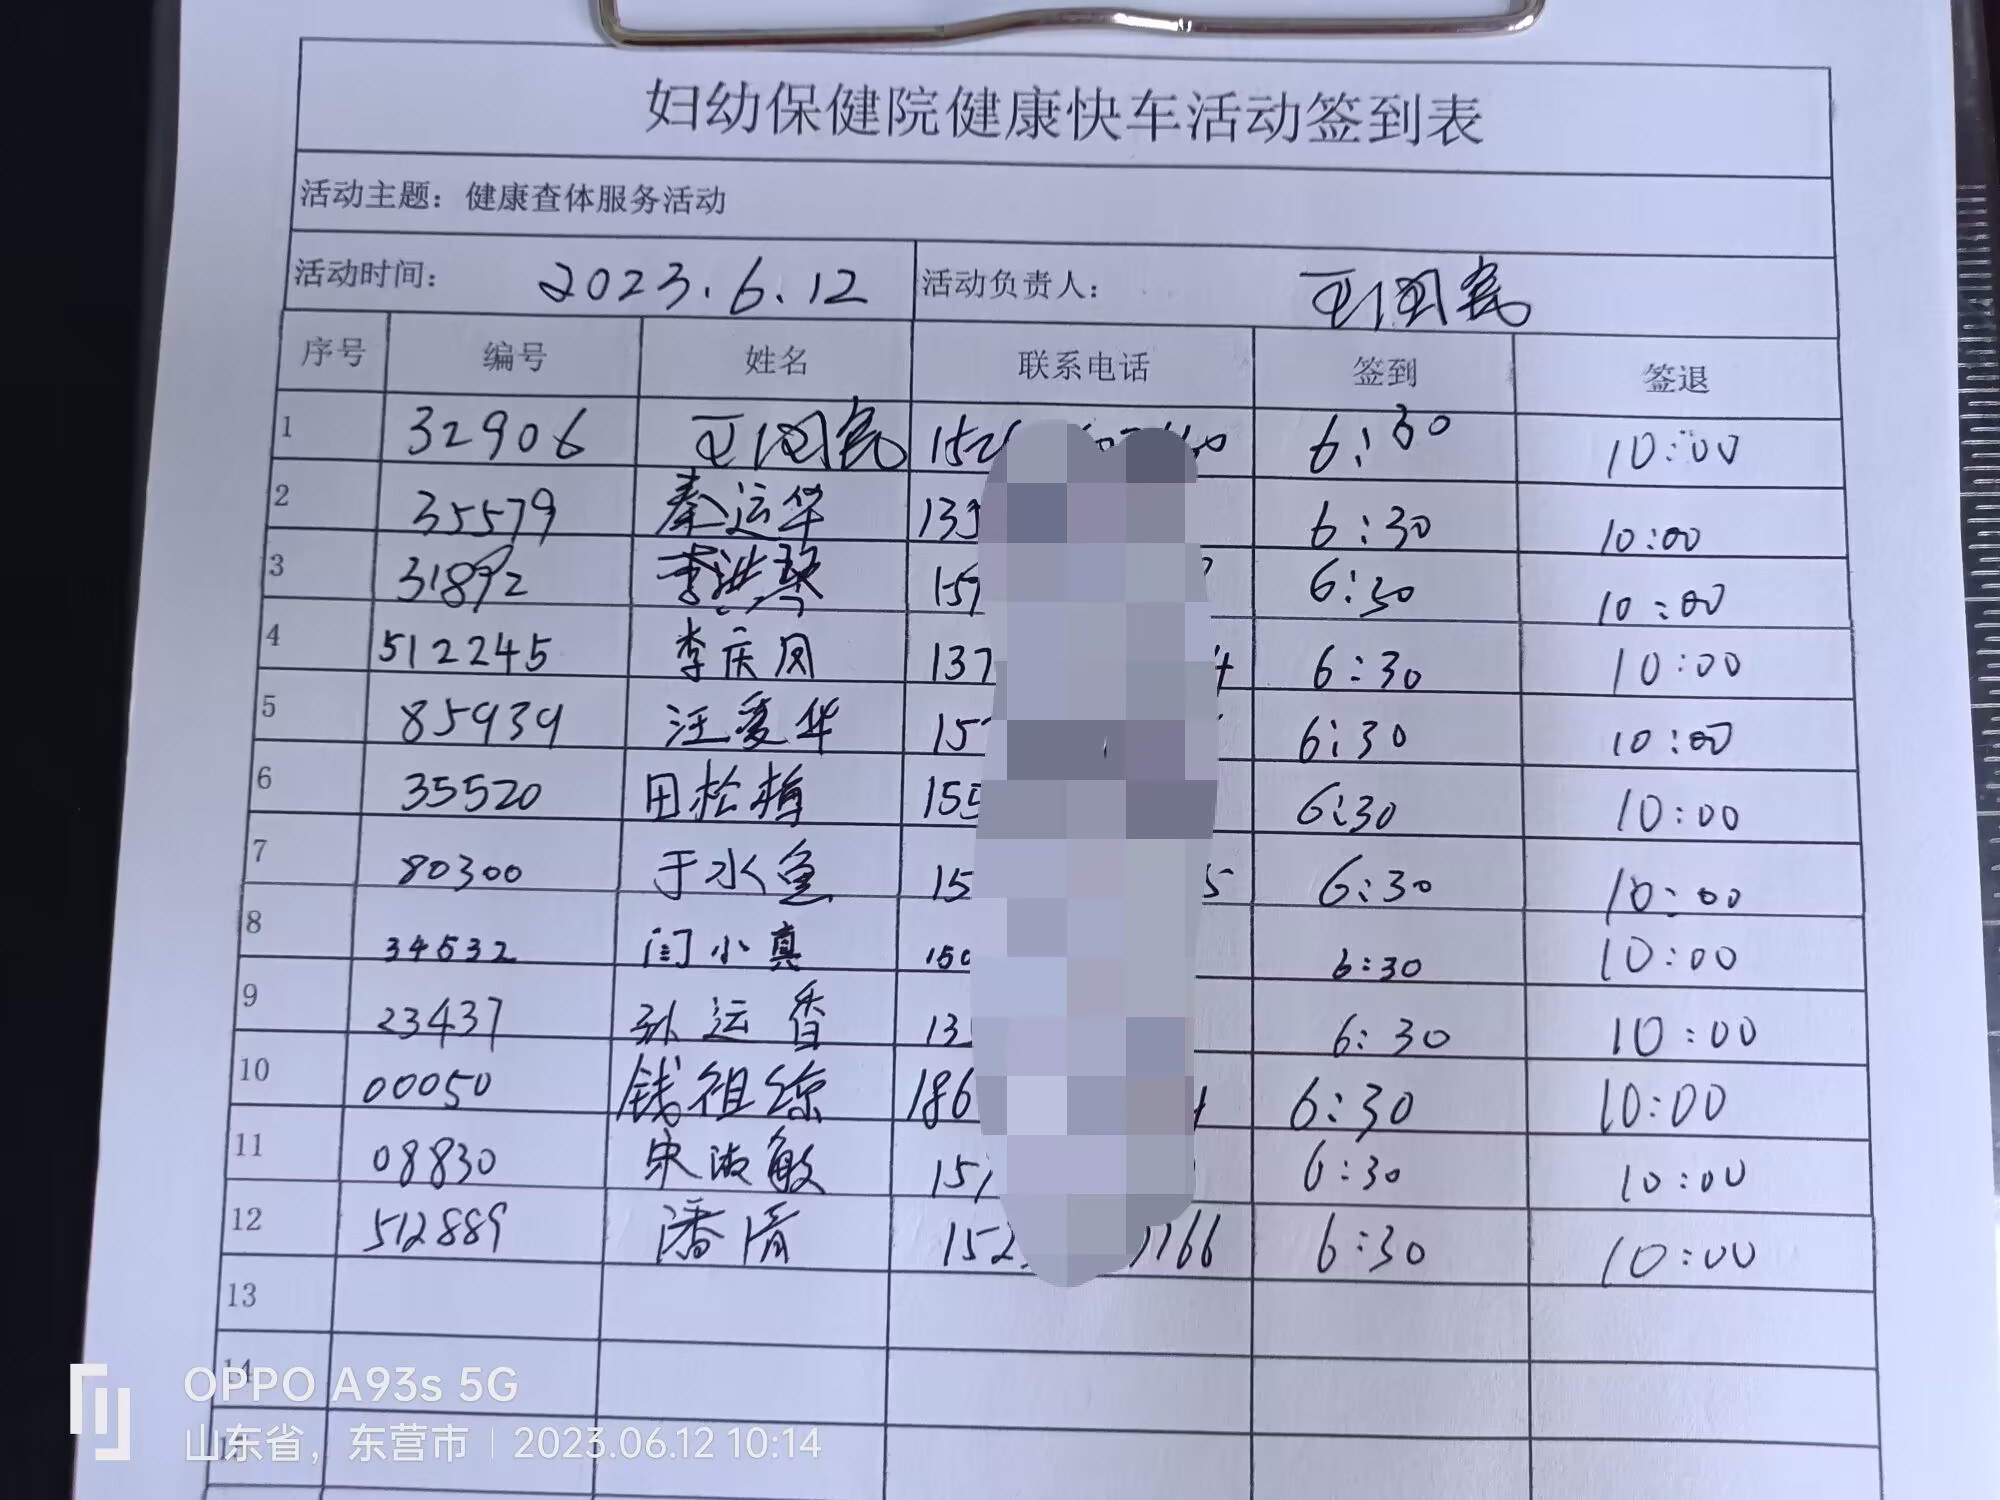 妇幼保健院健康快车活动签到表
活动主题：健康查体服务活动
活动时间： 2023.6.12 活动负责人：
序号 编号 姓名 联系电话 签到 签退
1 32906 152 6:30 10:00
2 35579 秦运华 133 6:30 10:00
3 31892 李 6:30 10:00
4 512245 李庆凤 137 4 6:30 10:00
5 85939 汪爱华 15 6:30 10:00
6 35520 田松梅 155 6:30 10:00
7 80300 于水鱼 15 5 6:30 10:00
8 34532 闫小真 150 6:30 10:00
9 23437 孙运香 13 6:30 10:00
10 00050 钱祖综 186 6:30 10:00
11 08830 宋淑敏 15 6:30 10:00
12 512889 潘清 152 166 6:30 10:00
13
14
OPPO A93s 5G
山东省，东营市 | 2023.06.12 10:14